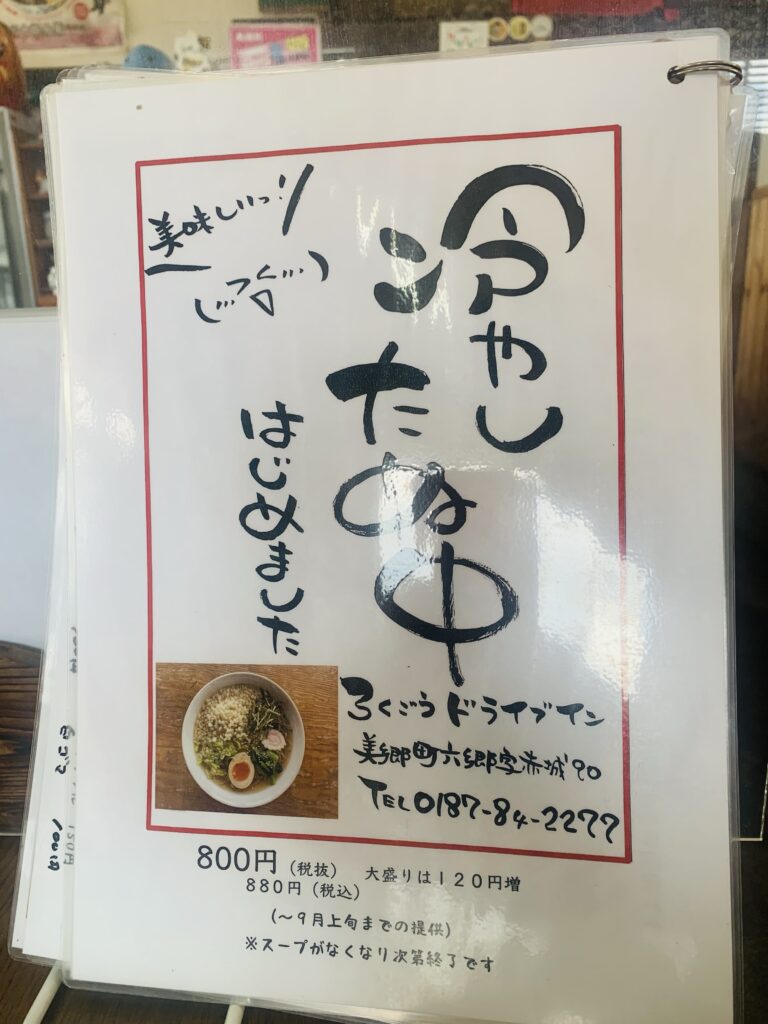 冷やし
たぬ中
はじめました
美味しいっ!
ろくごうドライブイン
美郷町六郷字赤城90
TEL0187-84-2277
800円（税抜） 大盛りは120円増
880円（税込）
(～9月上旬までの提供)
※スープがなくなり次第終了です